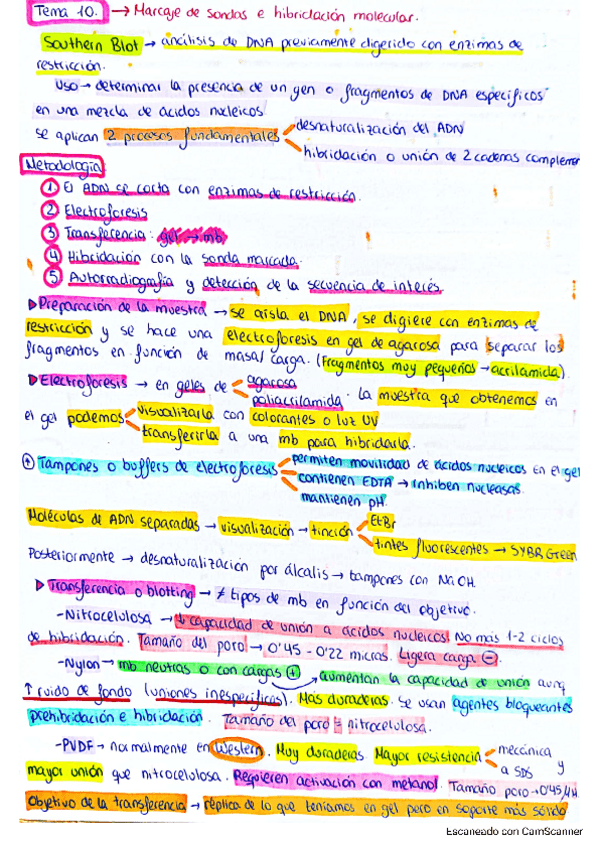 Tema 10. → Marcaje de sondas e hibridación molecular.
Southern Blot → análisis de DNA previamente digerido con enzimas de
restricción.
Uso → determinar la presencia de un gen o fragmentos de DNA específicos
en una mezcla de ácidos nucleicos
se aplican 2 procesos fundamentales
desnaturalización del ADN
hibridación o unión de 2 cadenas complemen
Metodología
① El ADN se corta con enzimas de restricción.
② Electroforesis
③ Transferencia: gel → mb
④ Hibridación con la sonda marcada.
⑤ Autorradiografía y detección de la secuencia de interés.
▷ Preparación de la muestra → se aisla el DNA, se digiere con enzimas de
restricción y se hace una electroforesis en gel de agarosa para separar los
fragmentos en función de masa/carga. (Fragmentos muy pequeños → acrilamida).
▷ Electroforesis → en geles de agarosa
poliacrilamida. la muestra que obtenemos en
el gel podemos visualizarla con colorantes o luz UV
transferirla a una mb para hibridarla.
⊕ Tampones o buffers de electroforesis
permiten movilidad de ácidos nucleicos en el gel
contienen EDTA → inhiben nucleasas.
mantienen pH.
Moléculas de ADN separadas → visualización → tinción
EtBr
tintes fluorescentes → SYBR Green
Posteriormente → desnaturalización por álcalis → tampones con NaOH.
▷ Transferencia o blotting → ≠ tipos de mb en función del objetivo.
- Nitrocelulosa → ↓ capacidad de unión a ácidos nucleicos. No más 1-2 ciclos
de hibridación. Tamaño del poro → 0'45 - 0'22 micras. Ligera carga ⊖.
- Nylon → mb neutras o con cargas ⊕ aumentan la capacidad de unión aunq
↑ ruido de fondo (uniones inespecíficas). Más duraderas. Se usan agentes bloqueantes
prehibridación e hibridación. Tamaño del poro = nitrocelulosa.
- PVDF → normalmente en Western. Muy duraderas. Mayor resistencia mecánica y
a SDS
mayor unión que nitrocelulosa. Requieren activación con metanol. Tamaño poro → 0'45
Objetivo de la transferencia → réplica de lo que teníamos en gel pero en soporte más sólido
Escaneado con CamScanner